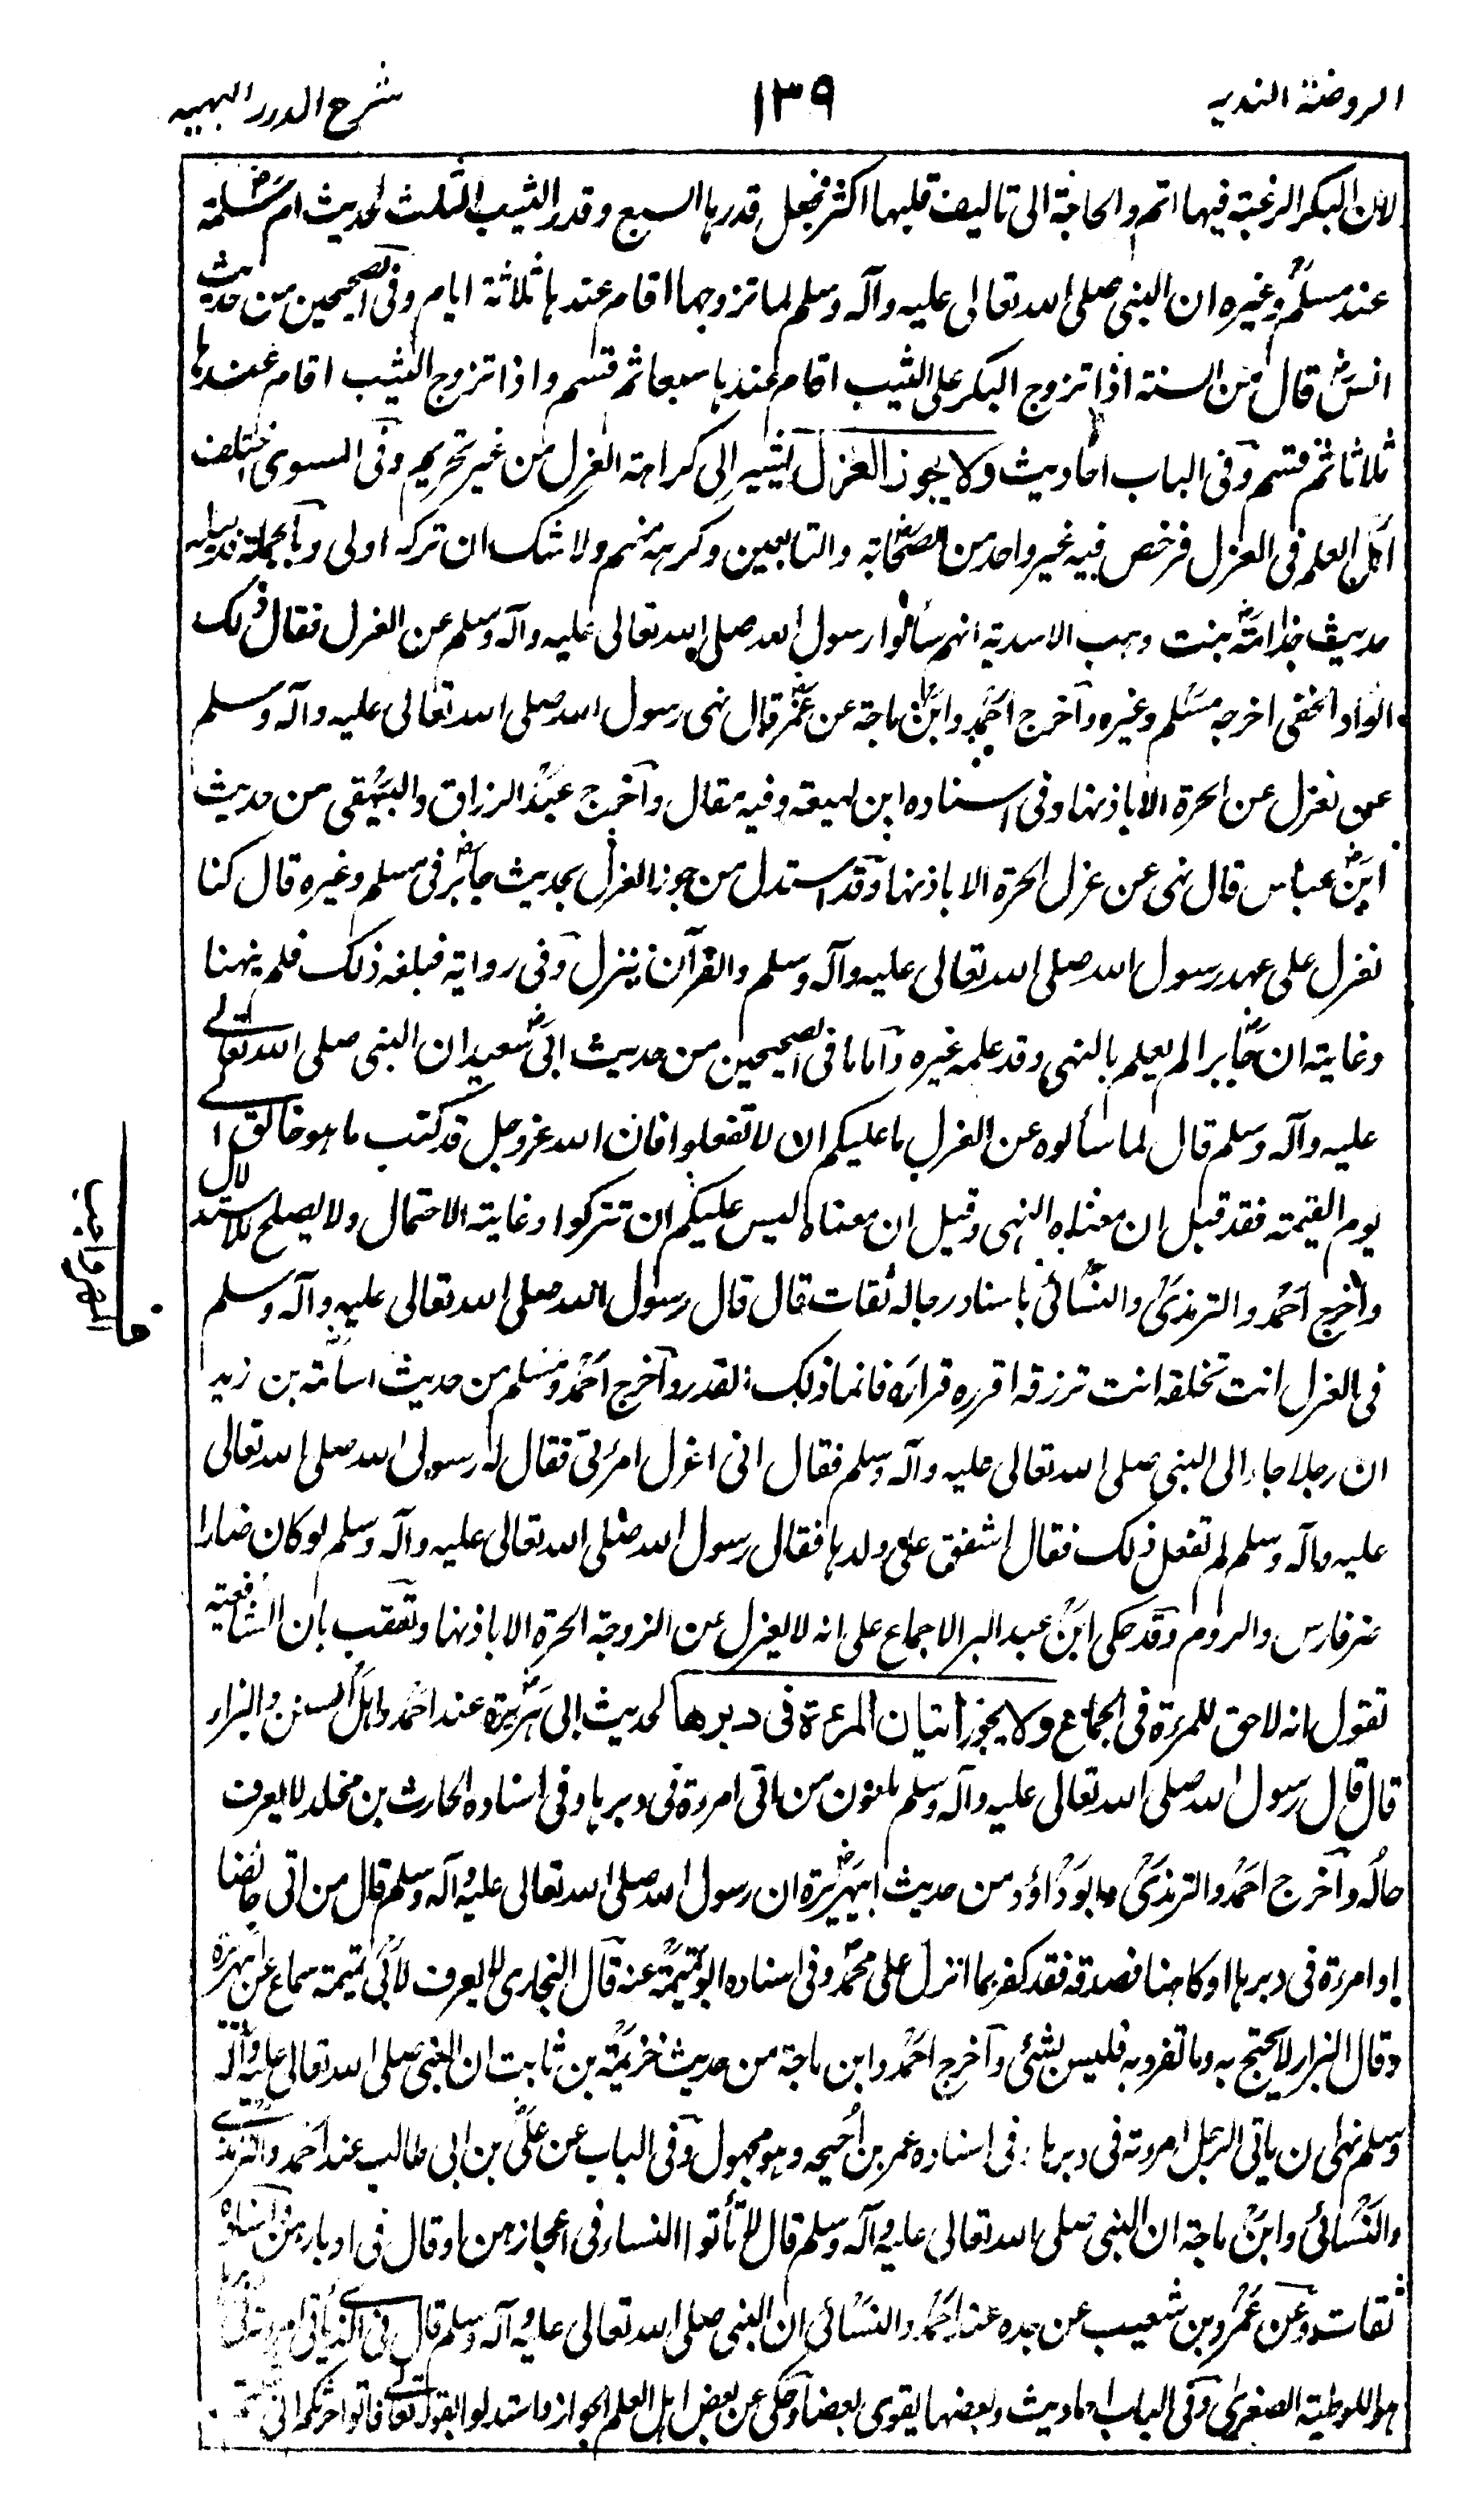 الروضة الندية
١٣٩
شرح الدرر البهية
لان البكر الرغبة فيها اتم والحاجة الى تاليف قلبها اكثر فجعل قدرها السبع وقدر الثيب الثلث لحديث ام سلمة
عند مسلم وغيره ان النبى صلى الله تعالى عليه وآله وسلم لما تزوجها اقام عندها ثلاثة ايام وفى الصحيحين من حديث
انس قال من السنة اذا تزوج البكر على الثيب اقام عندها سبعا ثم قسم واذا تزوج الثيب اقام عندها
ثلاثا ثم قسم وفى الباب احاديث ولا يجوز العزل يشير الى كراهة العزل من غير تحريم وفى المسوى اختلف
اهل العلم فى العزل فرخص فيه غير واحد من الصحابة والتابعين وكرهه منهم ولا شك ان تركه اولى وبالجملة فدليله
حديث جذامة بنت وهب الاسدية انهم سألوا رسول الله صلى الله تعالى عليه وآله وسلم عن العزل فقال ذلك
الواد الخفى اخرجه مسلم وغيره واخرج احمد وابن ماجة عن عمر قال نهى رسول الله صلى الله تعالى عليه وآله وسلم
عن نعزل عن الحرة الا باذنها وفى اسناده ابن لهيعة وفيه مقال واخرج عبد الرزاق والبيهقى من حديث
ابن عباس قال نهى عن عزل الحرة الا باذنها وقد استدل من جوز العزل بحديث جابر فى مسلم وغيره قال كنا
نعزل على عهد رسول الله صلى الله تعالى عليه وآله وسلم والقرآن ينزل وفى رواية فبلغه ذلك فلم ينهنا
وغايته ان جابرا لم يعلم بالنهى وقد علمه غيره واما ما فى الصحيحين من حديث ابى سعيد ان النبى صلى الله تعالى
عليه وآله وسلم قال لما سألوه عن العزل ما عليكم ان لا تفعلوا فان الله عز وجل قد كتب ما هو خالق الى
يوم القيمة فقد قيل ان معناه النهى وقيل ان معناه ليس عليكم ان تتركوا وغايته الاحتمال ولا يصلح للاستدلال
واخرج احمد والترمذى والنسائى باسناد رجاله ثقات قال قال رسول الله صلى الله تعالى عليه وآله وسلم
فى العزل انت تخلقه انت ترزقه اقرره قراره فانما ذلك القدر واخرج احمد ومسلم من حديث اسامة بن زيد
ان رجلا جاء الى النبى صلى الله تعالى عليه وآله وسلم فقال انى اعزل امرءتى فقال له رسول الله صلى الله تعالى
عليه وآله وسلم لم تفعل ذلك فقال اشفق على ولدها فقال رسول الله صلى الله تعالى عليه وآله وسلم لو كان ضارا
ضر فارس والروم وقد حكى ابن عبد البر الاجماع على انه لا يعزل عن الزوجة الحرة الا باذنها وتعقب بان الشافعية
تقول انه لا حق للمرءة فى الجماع ولا يجوز اتيان المرءة فى دبرها لحديث ابى هريرة عند احمد واهل السنن والبزار
قال قال رسول الله صلى الله تعالى عليه وآله وسلم ملعون من اتى امرءة فى دبرها وفى اسناده الحارث بن مخلد لا يعرف
حاله واخرج احمد والترمذى وابو داؤد من حديث ابيهريرة ان رسول الله صلى الله تعالى عليه وآله وسلم قال من اتى حائضا
او امرءة فى دبرها او كاهنا فصدقه فقد كفر بما انزل على محمد وفى اسناده ابو تميمة عنه قال البخارى لا يعرف لابى تميمة سماع عن ابيهريرة
وقال البزار لا يحتج به وما تفرد به فليس بشئ واخرج احمد وابن ماجة من حديث خزيمة بن ثابت ان النبى صلى الله تعالى عليه وآله
وسلم نهى ان ياتى الرجل امرءته فى دبرها وفى اسناده عمر بن أحيحه وهو مجهول وفى الباب عن على بن ابى طالب عند احمد والترمذى
والنسائى وابن ماجة ان النبى صلى الله تعالى عليه وآله وسلم قال لا تأتوا النساء فى اعجازهن او قال فى ادبارهن
ثقات وعن عمرو بن شعيب عن جده عند احمد والنسائى ان النبى صلى الله تعالى عليه وآله وسلم قال فى الذى ياتى
هو اللوطية الصغرى وفى الباب احاديث وبعضها يقوى بعضا وحكى عن بعض اهل العلم الجواز واستدلوا بقوله تعالى فاتوا حرثكم انى